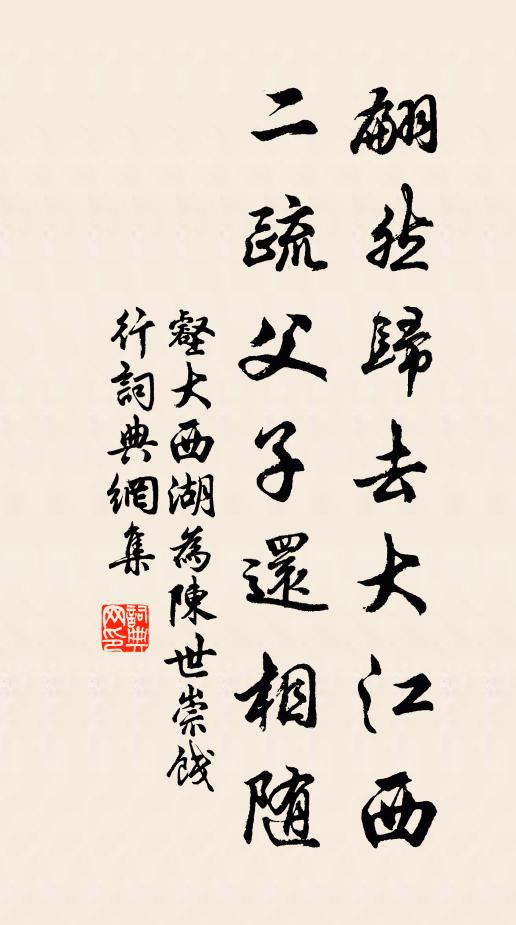 翩然歸去大江西
二疏父子還相随
壑大西湖為陳世崇餞
行詞典網集
詞典網印